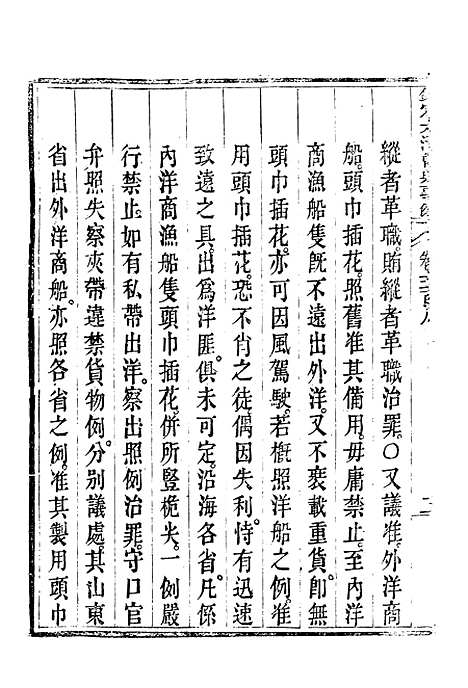 縱者革職賄縱者革職治罪○又議准外洋商
船頭巾插花照舊准其備用毋庸禁止至內洋
商漁船隻既不遠出外洋又不裝載重貨卽無
頭巾插花亦可因風駕駛若概照洋船之例准
用頭巾插花恐不肖之徒偶因失利恃有迅速
致遠之具出爲洋匪俱未可定沿海各省凡係
內洋商漁船隻頭巾插花併所豎桅尖一例嚴
行禁止如有私帶出洋察出照例治罪守口官
弁照失察夾帶違禁貨物例分別議處其山東
省出外洋商船亦照各省之例准其製用頭巾